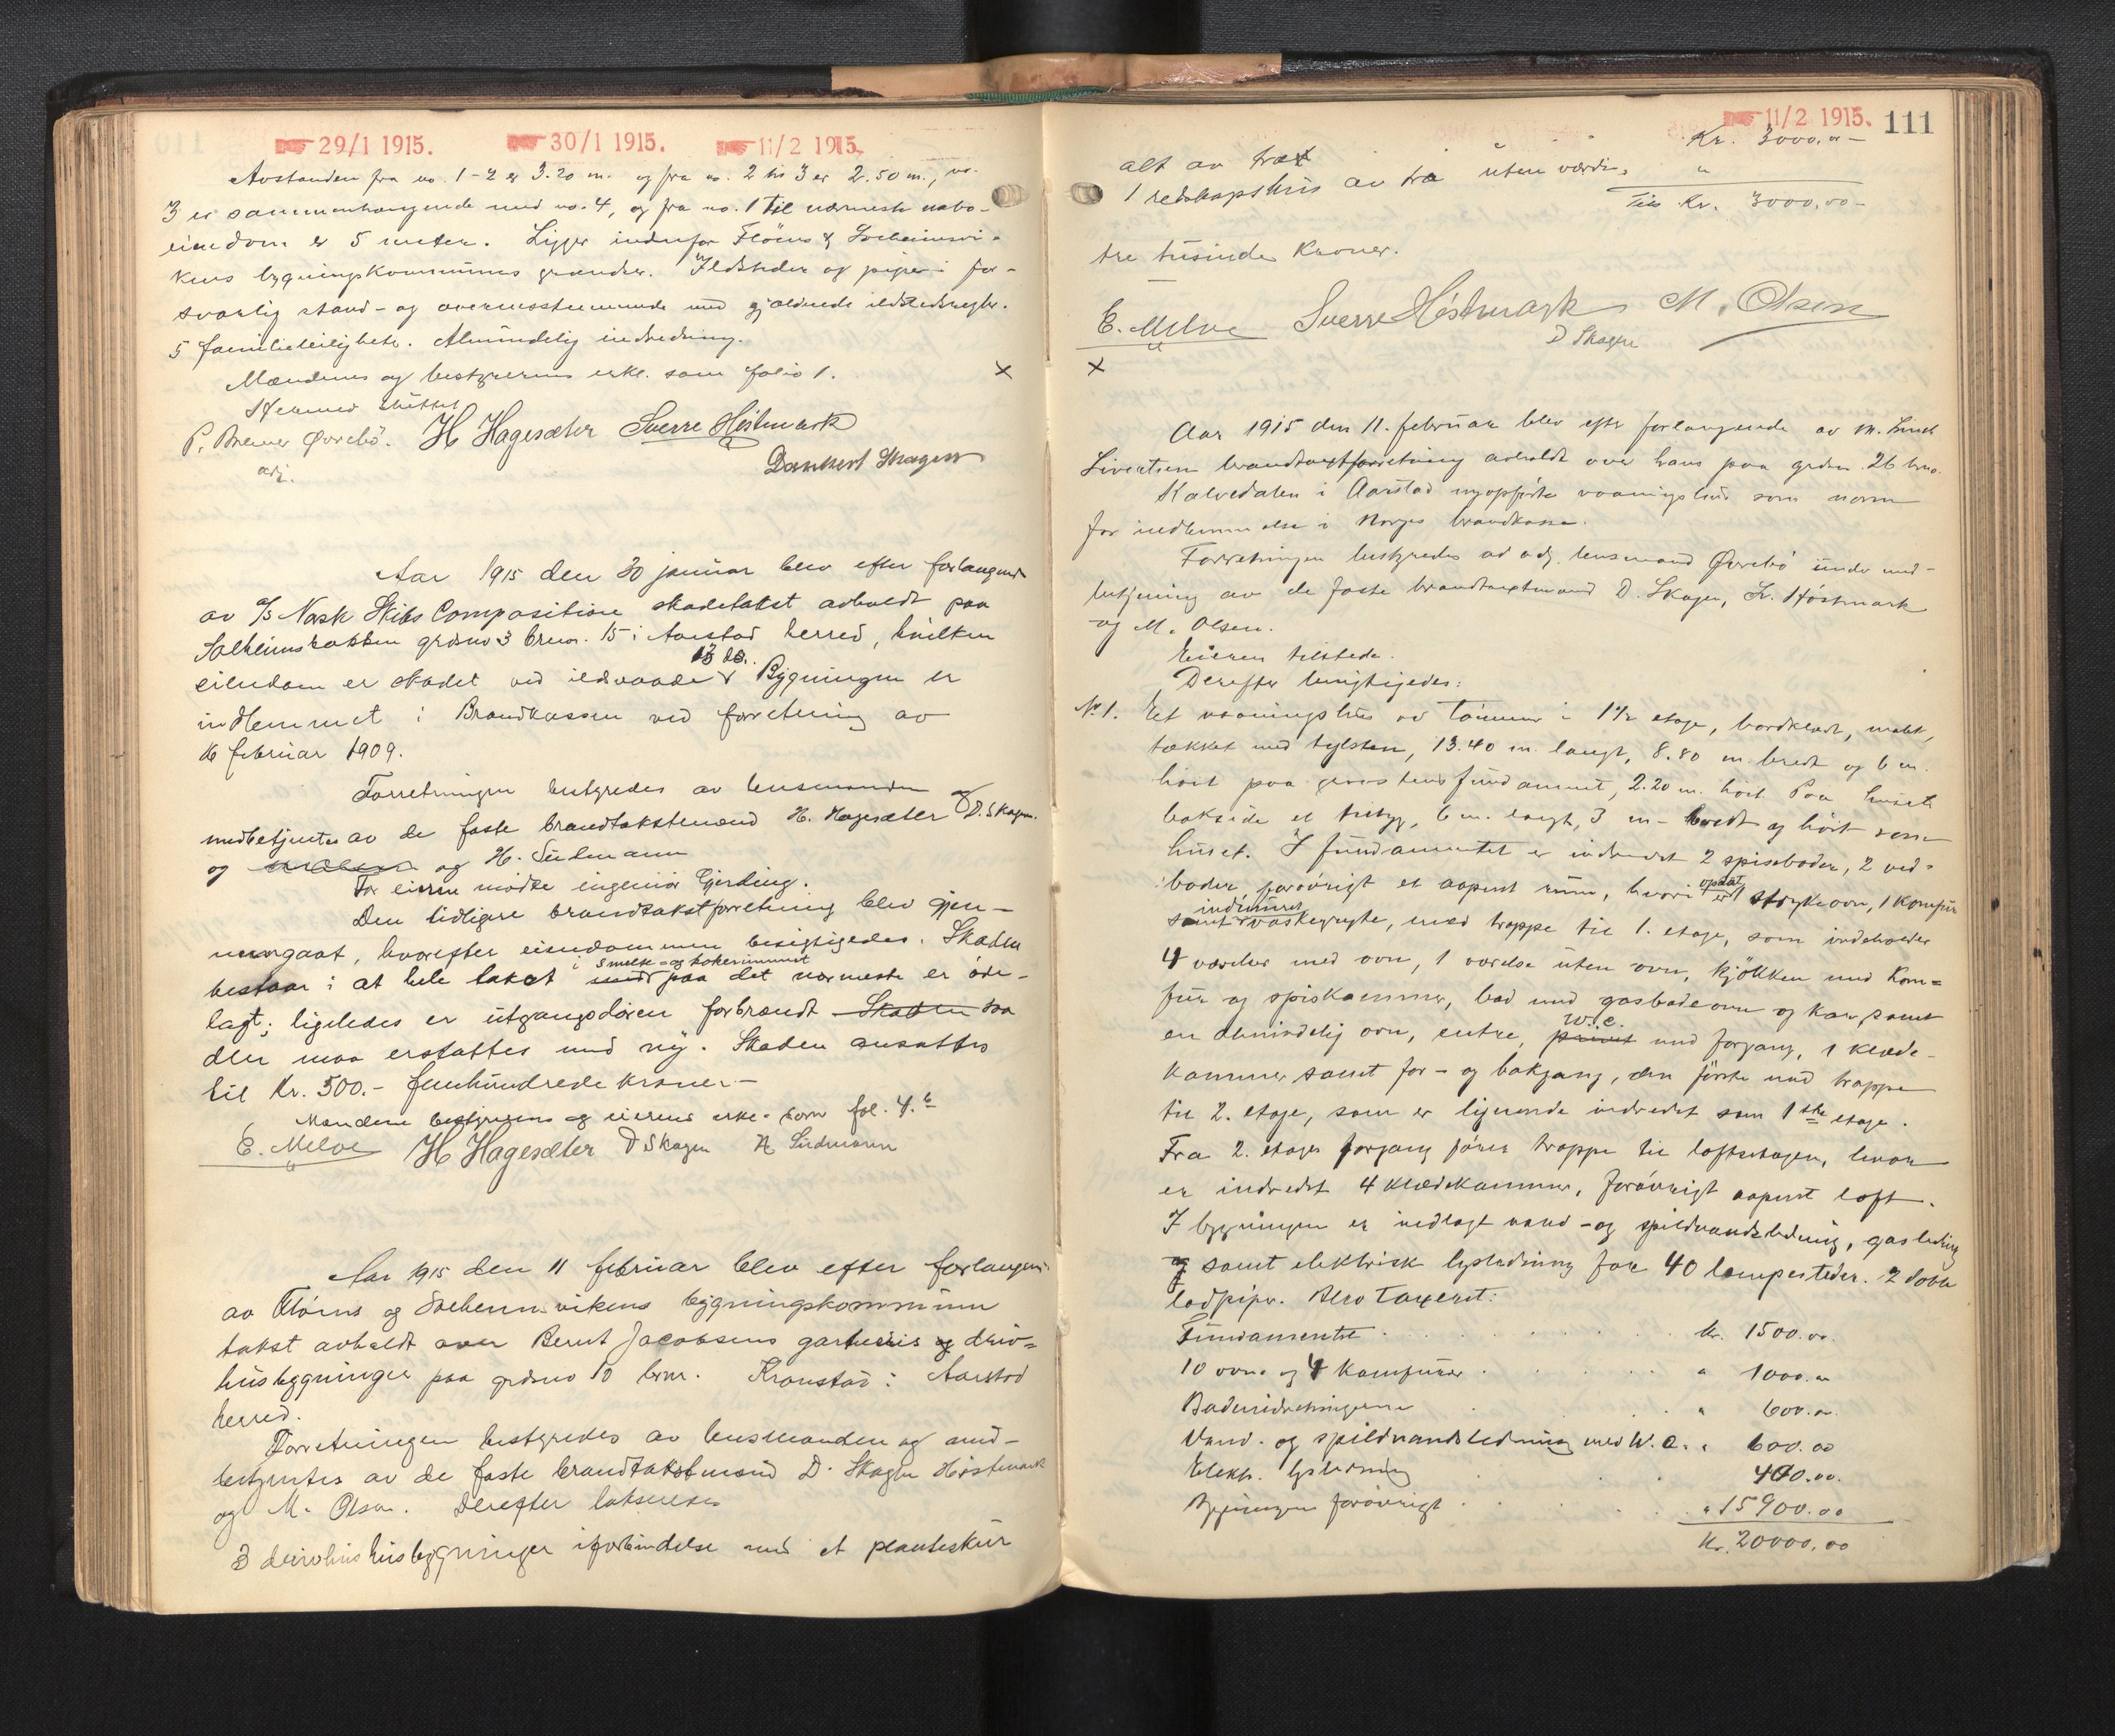 29/1 1915. 30/1 1915. 11/2 1915.
Avstanden fra no. 1-2 er 3.20 m. og fra no. 2 til 3 er 2.50 m., no.
3 er sammenhængende med no. 4, og fra no. 1 til nærmeste nabo-
eiendom er 5 meter. Ligger indenfor Fløens & Solheimsvi-
kens bygningskommunes grænder. Ildsteder og piper i for-
svarlig stand - og overensstemmende med gjældende ildstedsregler.
5 familieleiligheter. Almindelig indredning.
Mændenes og bestyrerens erkl. som folio 1.
Hermed sluttet
P. Bremer Øvrebö. H Hagesæter Sverre Höstmark
adj. Dankert Skagen
Aar 1915 den 30 januar blev efter forlangende
av A/S Norsk Skibs Composition skadetakst avholdt paa
Solheimsbakken grdsno 3 brno. 15 i Aarstad herred, hvilken
13 ds.
eiendom er skadet ved ildsvaade v Bygningen er
indlemmet i Brandkassen ved forretning av
16 februar 1909.
Forretningen bestyredes av lensmanden
medbetjentes av de faste brandtakstmænd H. Hagesæter & D. Skagen.
og og H. Sudmann
For eieren mödte ingeniör Gjerding.
Den tidligere brandtakstforretning blev gjen-
nemgaat, hvorefter eiendommen besigtigedes. Skaden
i smelte- og kokerummet
bestaar i at hele taket paa det nærmeste er öde-
lagt; ligeledes er utgangsdören forbrændt Skaden saa
den maa erstattes med ny. Skaden ansattes
til Kr. 500.- femhundrede kroner.-
Mændenes bestyrerens og eierens erkl. som fol. 4.b
E. Melve H Hagesæter D Skagen H Sudmann
Aar 1915 den 11 februar blev efter forlangende
av Flöens og Solheimsvikens bygningskommune
takst avholdt over Bernt Jacobsens gartneris og driv-
husbygninger paa grdsno 10 brnr. Kronstad i Aarstad
herred.
Forretningen bestyredes av lensmanden og med-
betjentes av de faste brandtakstmænd D. Skagen Höstmark
og M. Olsen. Derefter takseredes
3 drivhus husbygninger iforbindelse med et planteskur
11/2 1915. 111
alt av træ Kr. 3000.00
1 redskapshus av træ uten værdi. "
Tils Kr. 3000.00
tre tusinde Kroner.
E. Melve Sverre Höstmark M. Olsen
D Skagen
Aar 1915 den 11. februar blev efter forlangende av M.
Sivertsen brandtaxtforretning avholdt over hans paa grdsn. 26 brno.
Kalvedalen i Aarstad nyopförte vaaningshus som
for indlemmelse i Norges brandkasse.
Forretningen bestyredes av adj. lensmand Øvrebö under med-
betjening av de faste brandtaxtmænd D. Skagen, Sv. Höstmark
og M. Olsen.
Eieren tilstede.
Derefter besigtigedes:
No 1. Et vaaningshus av tömmer i 1 1/2 etage, bordklædt, malt,
tækket med tglsten, 13.40 m. langt, 8.80 m. bredt og 6 m.
höit paa graastensfundament, 2.20 m. höit. Paa husets
bakside et tilbyg, 6 m. langt, 3 m. bredt og höit som
huset. I fundamentet er indredet 2 spiseboder, 2 ved-
opsat
boder, forövrigt et aapent rum, hvori er strykeovn, 1 komfur
indmuret
samt vaskegryte, med trappe til 1. etage, som indeholder
4 værelser med ovn, 1 værelse uten ovn, kjökken med Kom-
fur og spiskammer, bad med gasbadeovn og kar, samt
w.c.
en almindelig ovn, entre, privet med forgang, 1 klæde-
kammer samt for- og bakgang, den förste med trappe
til 2. etage, som er lignende indredet som 1ste etage.
Fra 2. etages forgang förer trappe til loftsetagen, hvor
er indredet 4 klædekammer, forövrigt aapent loft.
I bygningen er indlagt vand- og spildvandsledning, gasledning
og samt elektrisk lysledning for 40 lampesteder. 2 dobb.
lödpiper. Blev taxeret:
Fundamentet Kr. 1500.00
10 ovne og 4 komfurer " 1000.00
Badeindretningerne " 600.00
Vand- og spildvandsledning med W.C. " 600.00
Elekt. lysledning 400.00.
Bygningen forövrigt " 15900.00
Kr. 20000.00